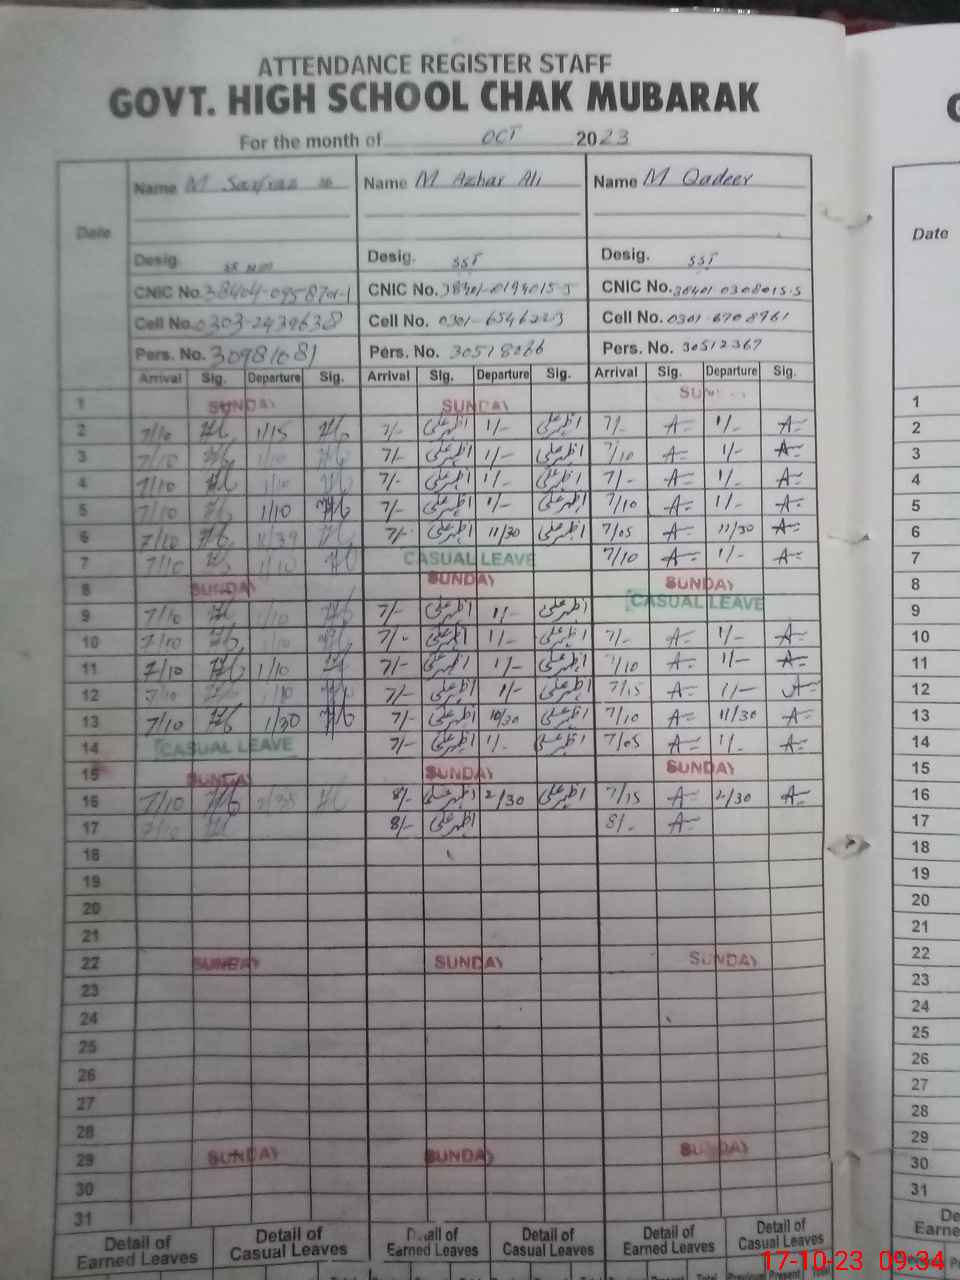 ATTENDANCE REGISTER STAFF
GOVT. HIGH SCHOOL CHAK MUBARAK
For the month of OCT 2023
Date Name M Sarfraz Name M Azhar Ali Name M Qadeer Date
Desig. Desig. SST Desig. SST
CNIC No. 38404-0958701-1 CNIC No. 38401-0194015-5 CNIC No. 38401-0308015-5
Cell No. 0303-2439638 Cell No. 0301-6546223 Cell No. 0301-6708961
Pers. No. 30981081 Pers. No. 30518086 Pers. No. 30512367
Arrival Sig. Departure Sig. Arrival Sig. Departure Sig. Arrival Sig. Departure Sig.
1 SUNDAY SUNDAY SUN 1
2 7/10 1/15 7/- اظہر علی 1/- اظہر علی 7/- 1/- 2
3 7/10 1/10 7/- اظہر علی 1/- اظہر علی 7/10 1/- 3
4 7/10 1/10 7/- اظہر علی 1/- اظہر علی 7/- 1/- 4
5 7/10 1/10 7/- اظہر علی 1/- اظہر علی 7/10 1/- 5
6 7/10 7/- اظہر علی 11/30 اظہر علی 7/05 11/30 6
7 7/10 1/10 CASUAL LEAVE 7/10 1/- 7
8 SUNDAY SUNDAY SUNDAY 8
9 7/10 1/10 7/- اظہر علی 1/- اظہر علی CASUAL LEAVE 9
10 7/10 1/10 7/- اظہر علی 1/- اظہر علی 7/- 1/- 10
11 7/10 1/10 7/- اظہر علی 1/- اظہر علی 7/10 1/- 11
12 7/10 1/10 7/- اظہر علی 1/- اظہر علی 7/15 1/- 12
13 7/10 1/30 7/- اظہر علی 10/30 اظہر علی 7/10 11/30 13
14 CASUAL LEAVE 7/- اظہر علی 1/- اظہر علی 7/05 1/- 14
15 SUNDAY SUNDAY SUNDAY 15
16 7/10 2/35 8/- اظہر علی 2/30 اظہر علی 7/15 2/30 16
17 7/10 8/- اظہر علی 8/- 17
18 18
19 19
20 20
21 21
22 SUNDAY SUNDAY SUNDAY 22
23 23
24 24
25 25
26 26
27 27
28 28
29 SUNDAY SUNDAY SUNDAY 29
30 30
31 31
Detail of Earned Leaves Detail of Casual Leaves Detail of Earned Leaves Detail of Casual Leaves Detail of Earned Leaves Detail of Casual Leaves
17-10-23 09:34